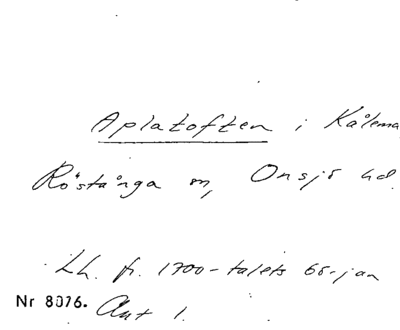 Aplatoften i Kålema
Röstånga sn, Onsjö hd.
Lh. fr. 1700-talets
Nr 8076. Ant 1.